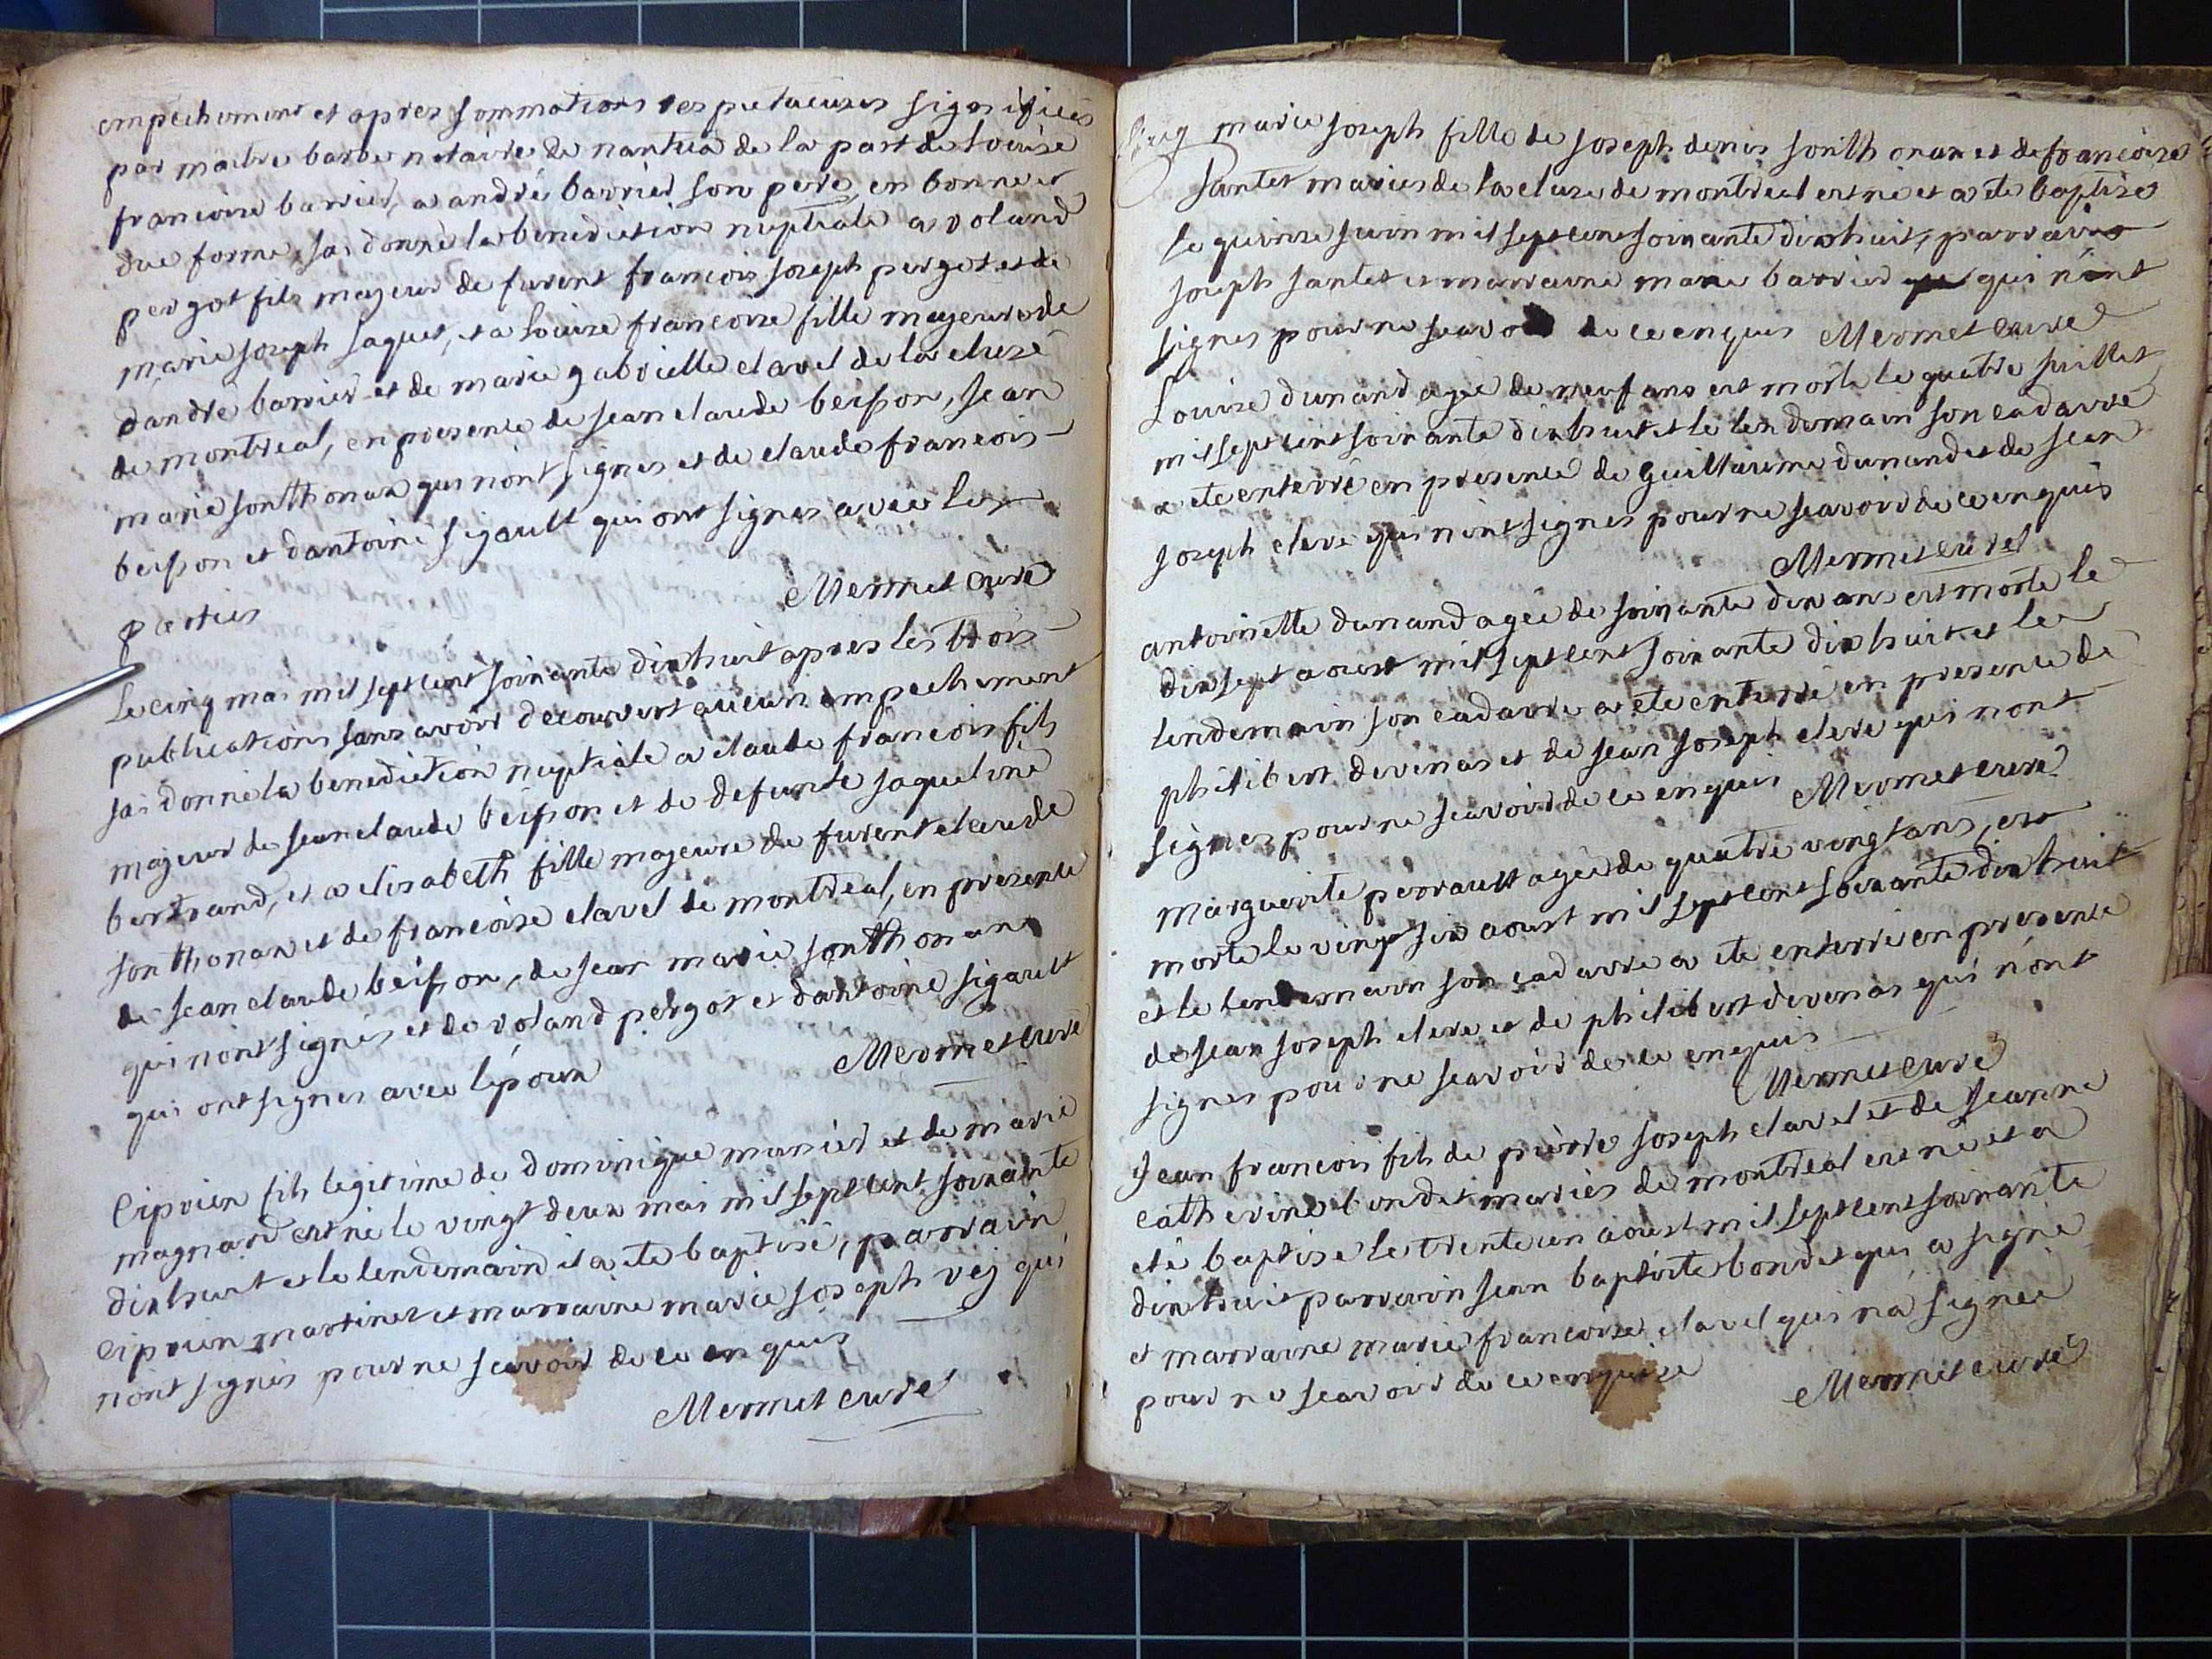 empechement et apres sommations respectueuses signifiées
par maitre barbe notaire de nantua de la part de louise
francoise barrier, a andré barrier son pere, en bonne et
due forme, jai donné la benediction nuptiale a voland
pergot fils majeur de furent francois joseph pergot et de
marie joseph jaquet, et a louise francoise fille majeure de
dandré barrier et de marie gabrielle clavel de la cluse
de montreal, en presence de jean claude beisson, jean
marie sonthonax qui nont signes et de claude francois
beisson et dantoine sigault qui ont signes avec les
parties
Mermet curé
Le cinq mai mil sept cent soixante dix huit apres les trois
publications sans avoir decouvert aucun empechement
jai donné la benediction nuptiale a claude francois fils
majeur de jean claude beisson et de defunte jaqueline
bertrand, et a elisabeth fille majeure de furent claude
sonthonax et de francoise clavel de montreal, en presence
de jean claude beisson, de jean marie sonthonax
qui nont signés et de voland pergot et dantoine sigault
qui ont signes avec lépoux
Mermet curé
Ciprien fils legitime de dominique manier et de marie
magnard est né le vingt deux mai mil sept cent soixante
dix huit et le lendemain il a ete baptisé, parrain
ciprien martinet et marraine marie joseph vej qui
nont signés pour ne scavoir de ce enquis
Mermet curé
marie joseph fille de joseph denis sonthonax et de francoise
jantet mariés de la cluse de montreal est né et a ete baptisé
le quinze juin mil sept cent soixante dix huit, parrain
joseph jantet et marraine marie barrier qui nont
signes pour ne scavoir de ce enquis Mermet curé
Louise dunand agée de neuf ans est morte le quatre juillet
mil sept cent soixante dix huit et le lendemain son cadavre
a ete enterré en presence de guillaume dunand et de jean
joseph clerc qui nont signes pour ne scavoir de ce enquis
Mermet curé
antoinette dunand agée de soixante dix ans est morte le
dix sept aoust mil sept cent soixante dix huit et le
lendemain son cadavre a ete enterré en presence de
philibert devenas et de jean joseph clerc qui nont
signes pour ne scavoir de ce enquis Mermet curé
Marguerite perrault agée de quatre vingt ans, est
morte le vingt six aoust mil sept cent soixante dix huit
et le lendemain son cadavre a ete enterré en presence
de jean joseph clerc et de philibert devenas qui nont
signes pour ne scavoir de ce enquis
Mermet curé
Jean francois fils de pierre joseph clavel et de jeanne
catherine bondet mariés de montreal est né et a
eté baptise le trente un aoust mil sept cent soixante
dix huit parrain jean baptiste bondet qui a signé
et marraine marie francoise clavel qui na signée
pour ne scavoir de ce enquise Mermet curé